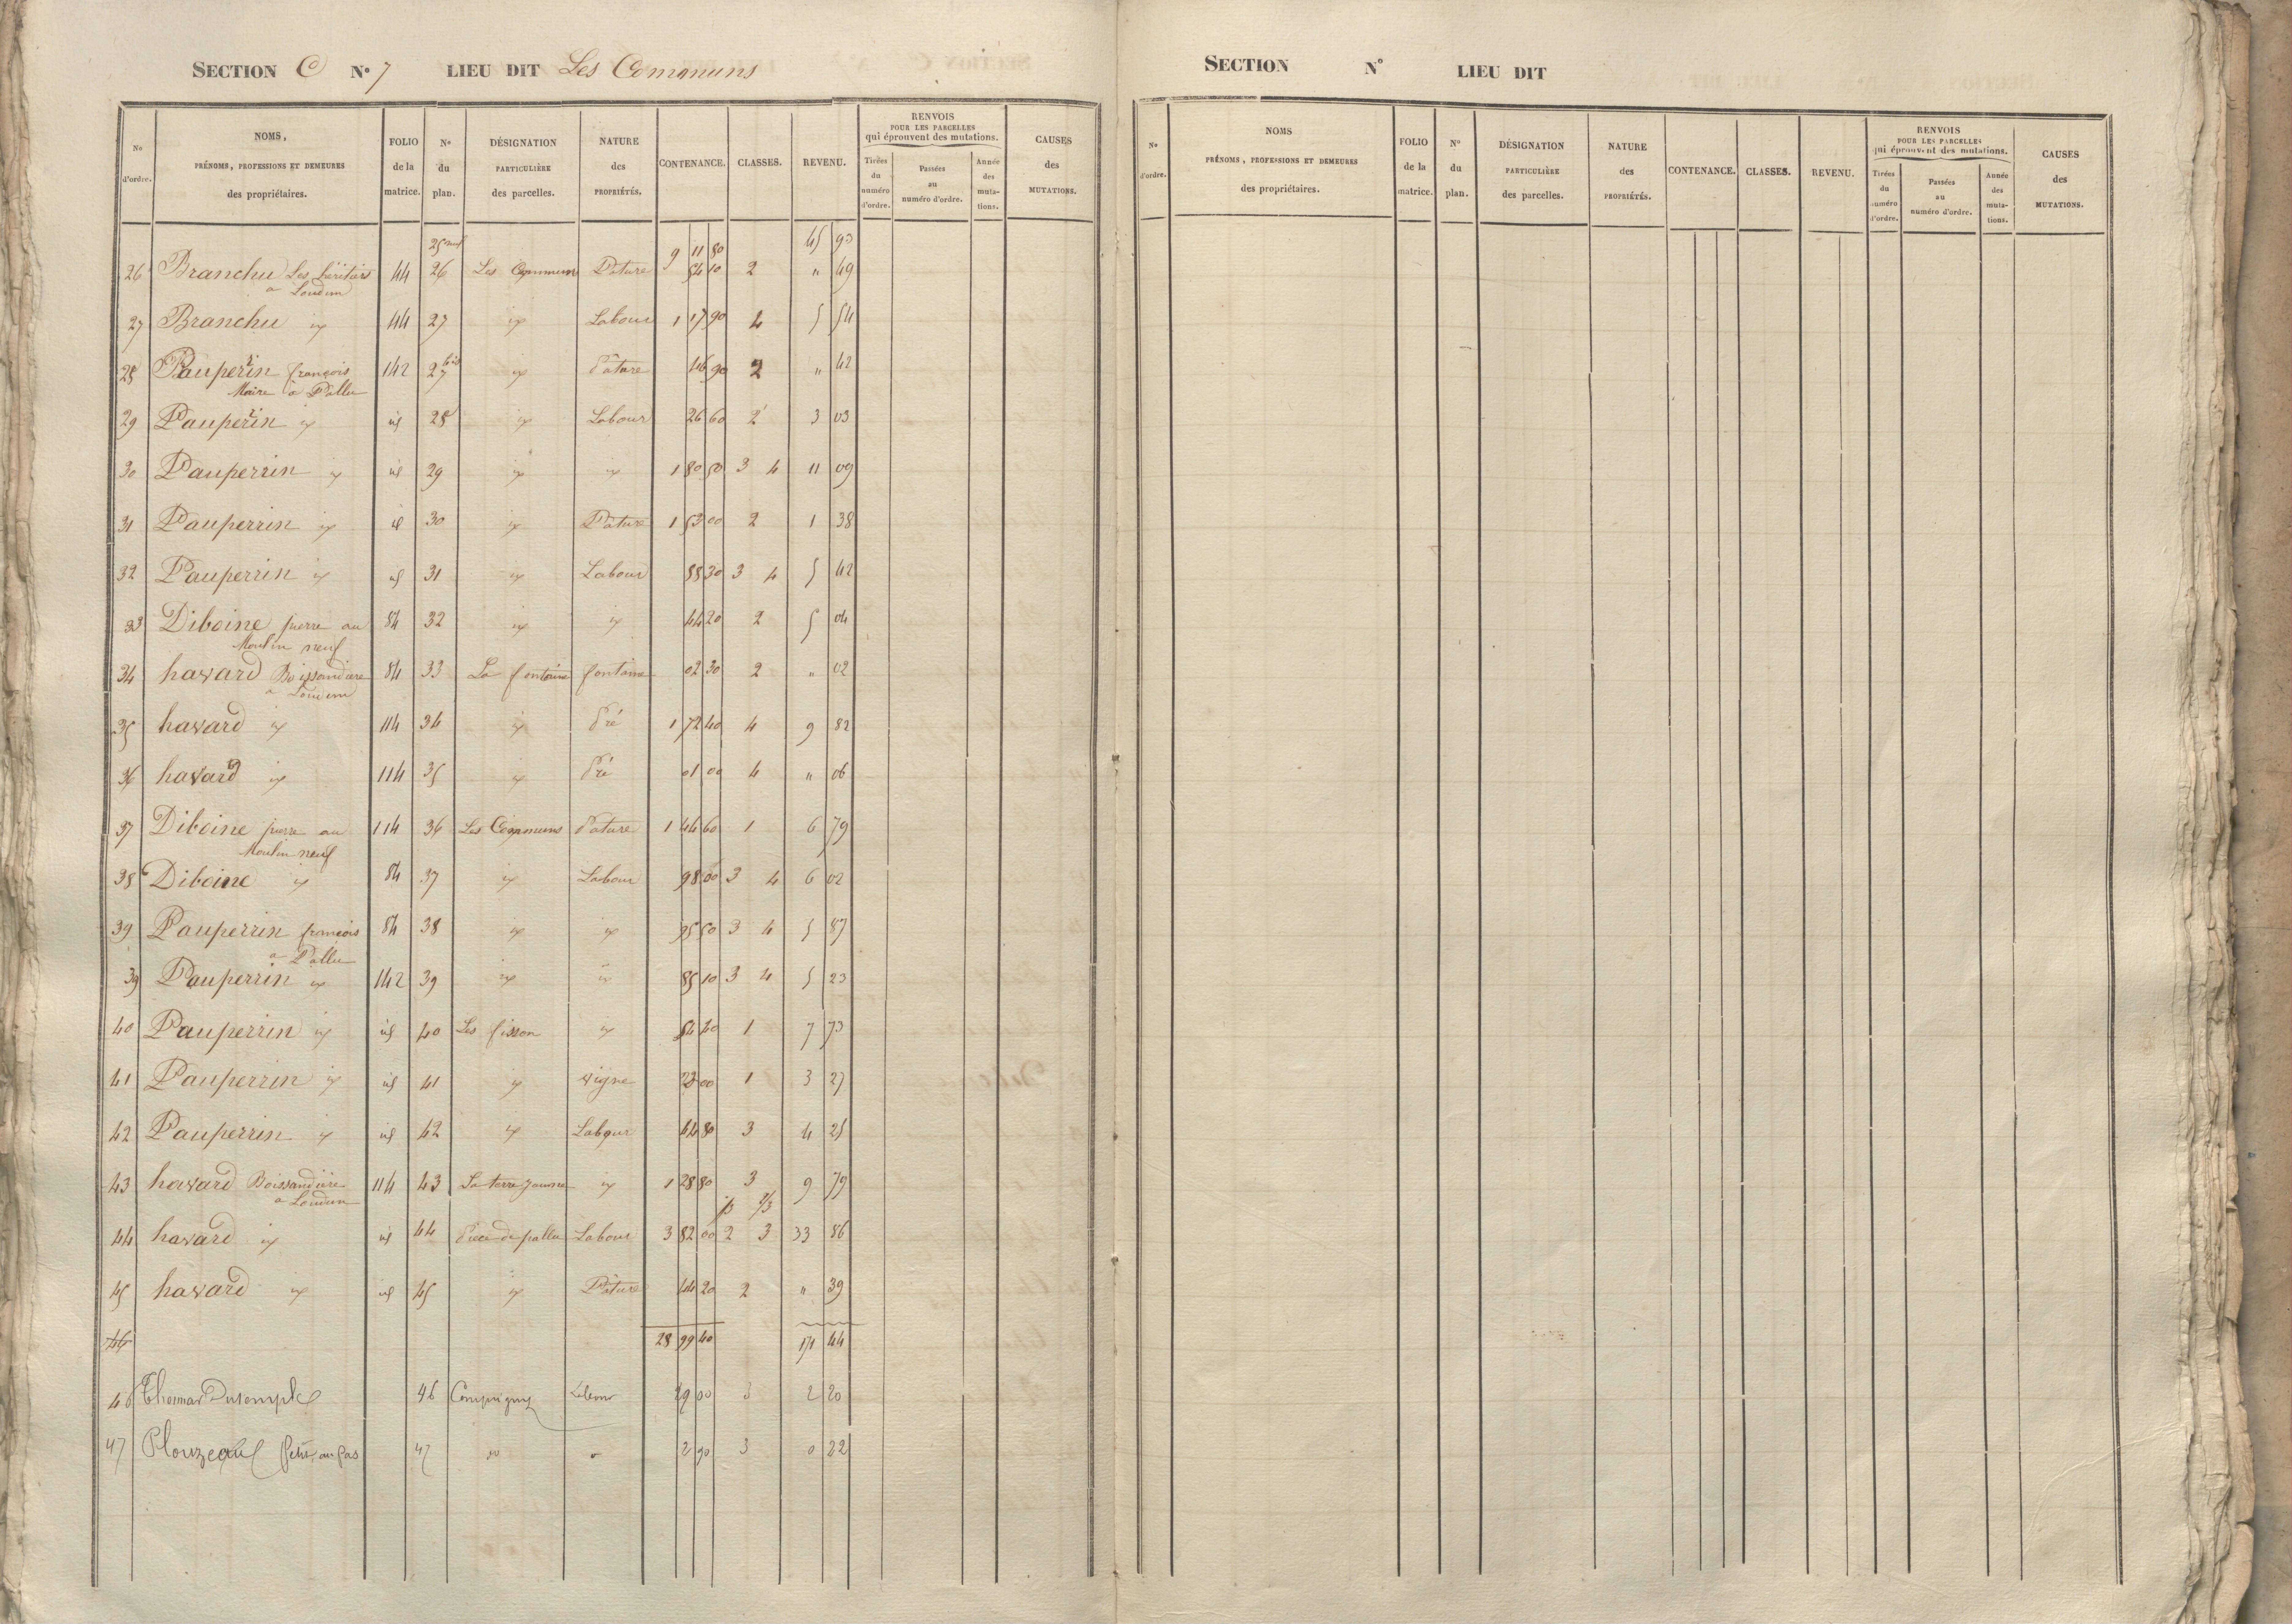 SECTION C N° 7 LIEU DIT Les Communs
N° d'ordre. NOMS, PRÉNOMS, PROFESSIONS ET DEMEURES des propriétaires. FOLIO de la matrice. N° du plan. DÉSIGNATION PARTICULIÈRE des parcelles. NATURE des PROPRIÉTÉS. CONTENANCE. CLASSES. REVENU. RENVOIS POUR LES PARCELLES qui éprouvent des mutations. Tirées du numéro d'ordre. Passées au numéro d'ordre. Année des muta-tions. CAUSES des MUTATIONS.
9 11 80 45 90
26 Branchu Les héritiers 44 26 Les Communs Pature 84 10 2 " 49
a Loudun
27 Branchu id 44 27 id Labour 1 17 90 4 5 54
28 Pauperrin françois 142 27 bis id Pature 46 90 2 " 42
Maire à Pallu
29 Pauperrin id id 28 id Labour 26 60 2 3 03
30 Pauperrin id id 29 id id 1 80 50 3 4 11 09
31 Pauperrin id id 30 id Pature 1 53 00 2 1 38
32 Pauperrin id id 31 id Labour 88 30 3 4 5 42
33 Diboine pierre au 84 32 id id 44 20 2 5 04
Moulin neuf
34 havard Boissandiere 84 33 La fontaine fontaine 02 30 2 " 02
a Loudun
35 havard id 114 34 id Pré 1 72 40 4 9 82
36 havard id 114 35 id Pré 01 00 4 " 06
37 Diboine pierre au 114 36 Les Communs Pature 1 44 60 1 6 79
Moulin neuf
38 Diboine id 84 37 id Labour 98 00 3 4 6 02
39 Pauperrin françois 84 38 id id 95 50 3 4 5 87
a Pallu
39 Pauperrin id 142 39 id id 85 10 3 4 5 23
40 Pauperrin id id 40 Les fisson id 54 40 1 7 73
41 Pauperrin id id 41 id vigne 23 00 1 3 27
42 Pauperrin id id 42 id Labour 44 80 3 4 25
43 havard Boissandiere 114 43 La terre jaune id 1 28 80 3 9 79
a Loudun
1/3 2/3
44 havard id id 44 Piece de pallu Labour 3 82 00 2 3 33 86
45 havard id id 45 id Pature 44 20 2 " 39
46 28 99 40 171 44
46 46 Labour 29 00 3 2 20
47 47 2 90 3 0 22
SECTION N° LIEU DIT
N° d'ordre. NOMS PRÉNOMS, PROFESSIONS ET DEMEURES des propriétaires. FOLIO de la matrice. N° du plan. DÉSIGNATION PARTICULIÈRE des parcelles. NATURE des PROPRIÉTÉS. CONTENANCE. CLASSES. REVENU. RENVOIS POUR LES PARCELLES qui éprouvent des mutations. Tirées du numéro d'ordre. Passées au numéro d'ordre. Année des muta-tions. CAUSES des MUTATIONS.